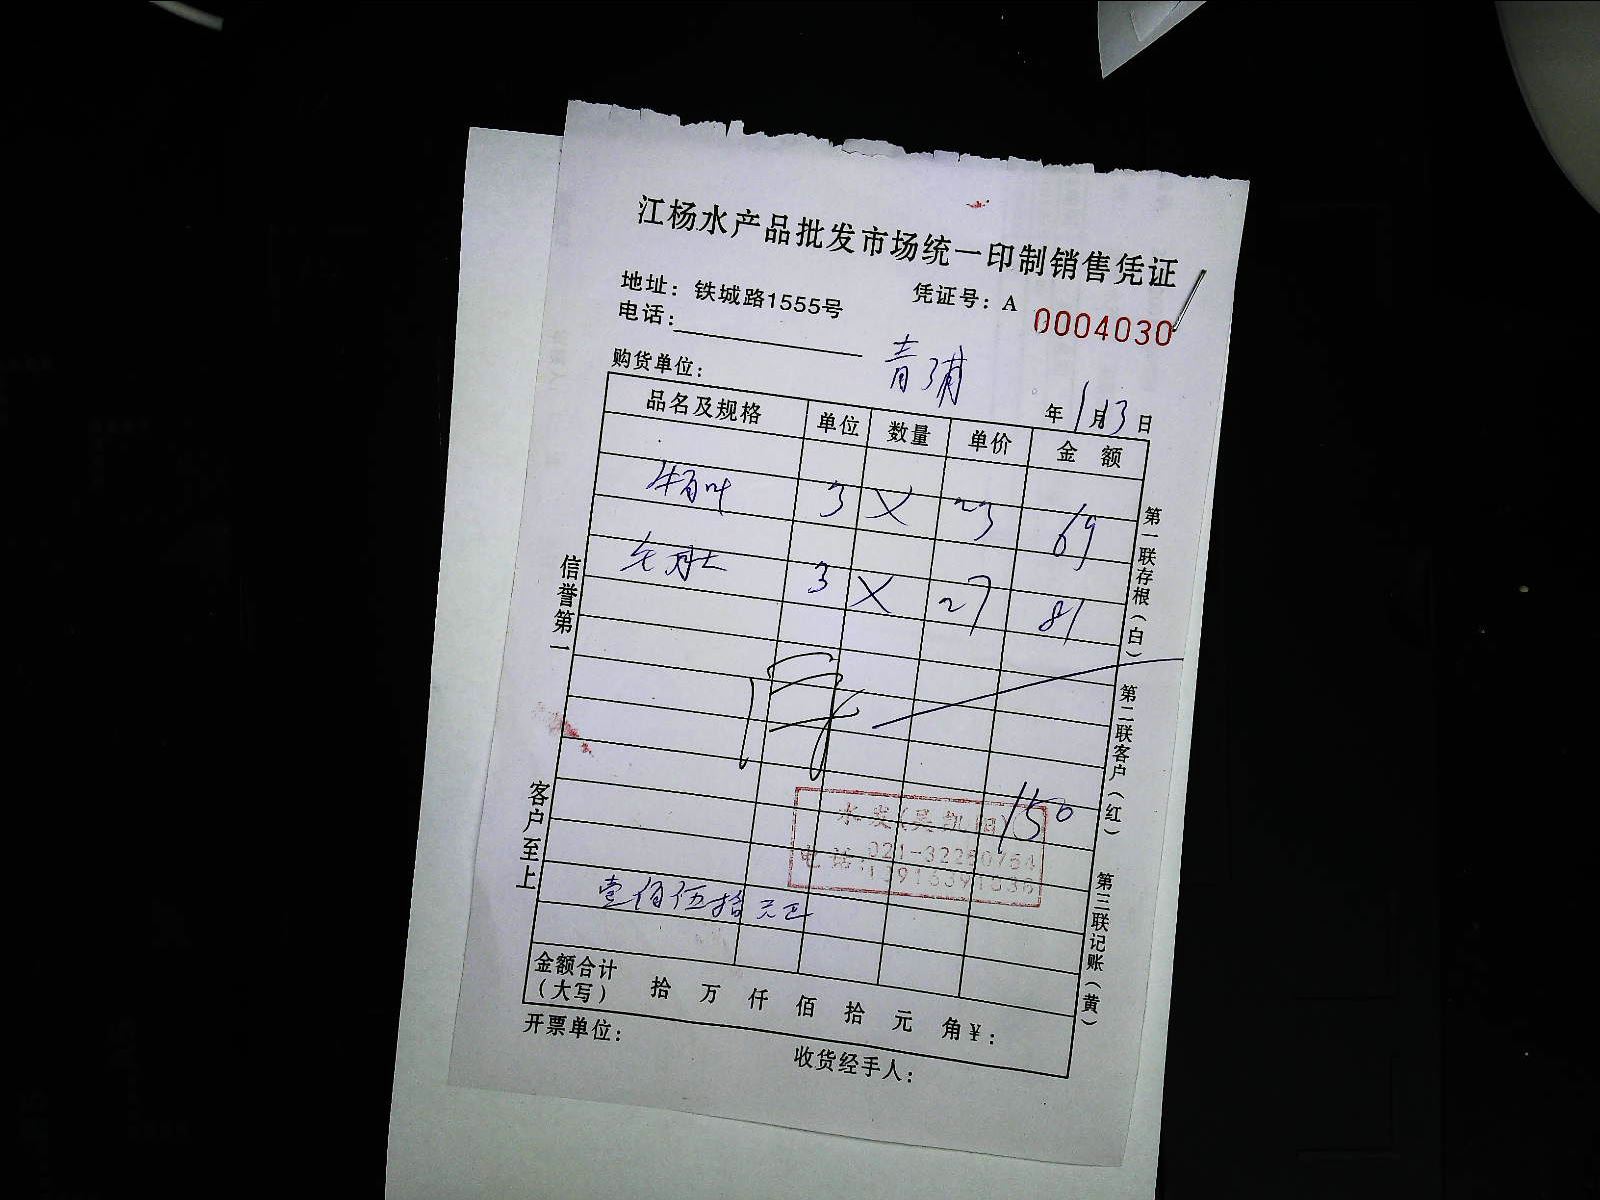 江杨水产品批发市场统一印制销售凭证
地址：铁城路1555号 凭证号：A 0004030
电话：
购货单位： 青浦 年1月13日
品名及规格 单位 数量 单价 金 额
牛百叶 3 X 23 69
毛肚 3 X 27 81
150
水发(吴凯阳)
电话：021-32260754
壹佰伍拾元正
金额合计
（大写） 拾 万 仟 佰 拾 元 角￥：
开票单位： 收货经手人：
信誉第一 客户至上
第一联存根（白） 第二联客户（红） 第三联记账（黄）